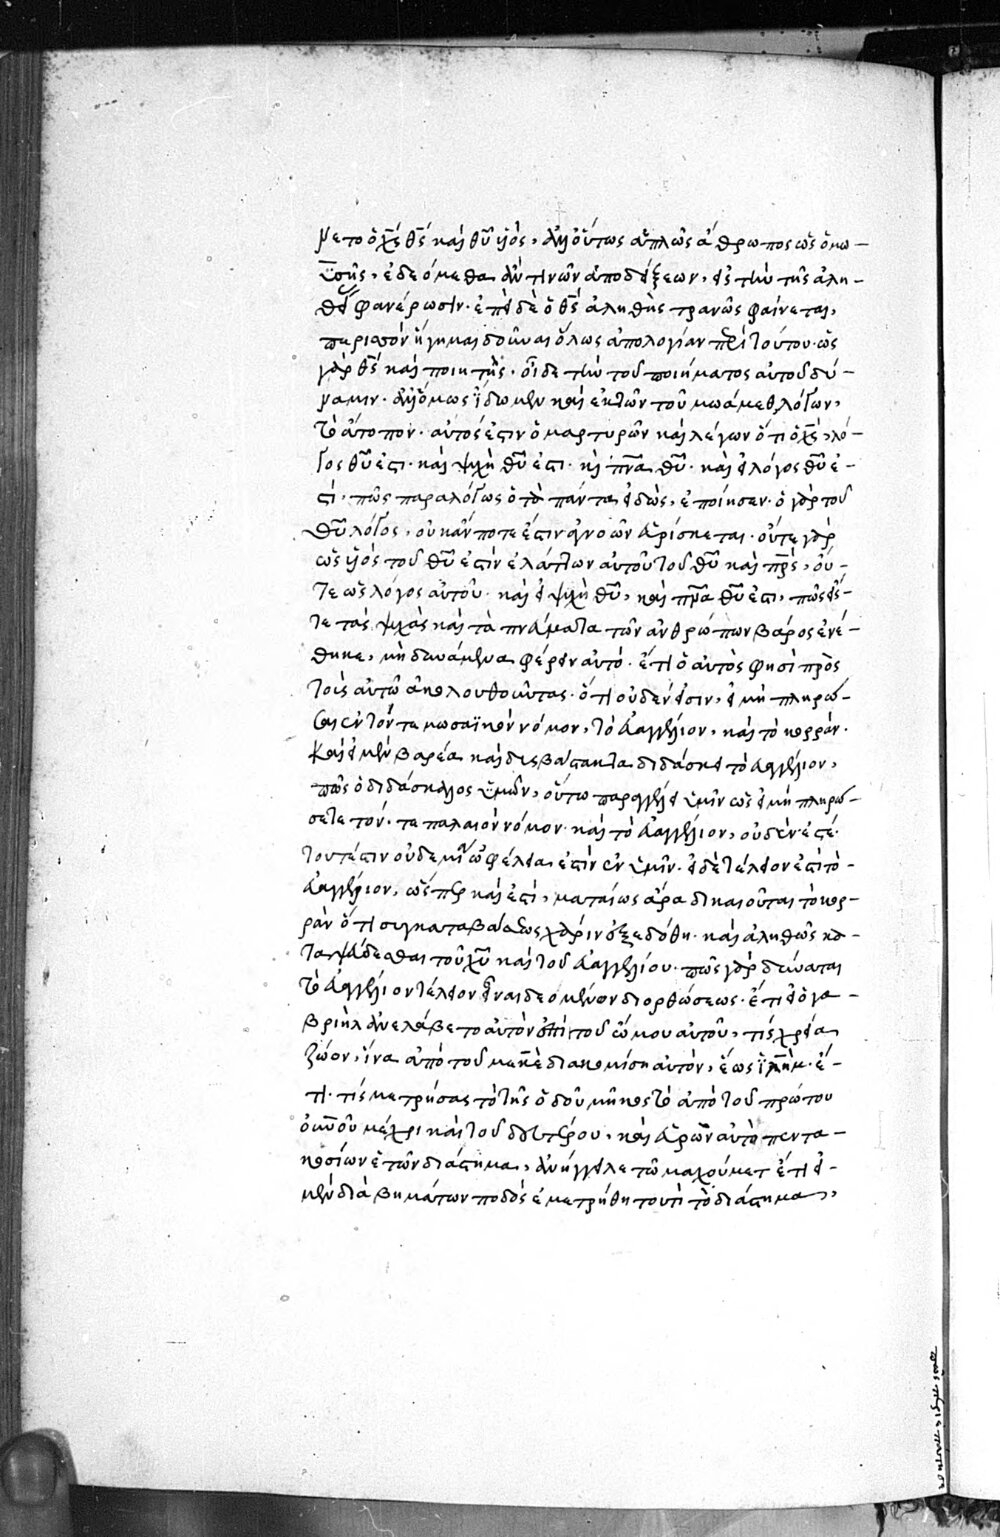 νετο ὁ χς θς καὶ θυ υἱός, ἀλλ' οὕτως ἁπλῶς ἄνθρωπος ὡς ὁ μω-
υσῆς, ἐδεόμεθα ἂν τινῶν ἀποδείξεων, εἰς τὴν τῆς ἀλη-
θεί φανέρωσιν. ἐπεὶ δὲ ὁ θς ἀληθὴς τρανῶς φαίνεται,
περισσὸν ἥγημαι δοῦναι ὅλως ἀπολογίαν περὶ τούτου. ὡς
γὰρ θς καὶ ποιητὴς. οἶδε τὴν τοῦ ποιήματος αὐτοῦ δύ-
ναμιν. ἀλλ' ὅμως ἴδωμεν καὶ ἐκ τῶν τοῦ μωάμεθ λόγων,
τὸ ἄτοπον. αὐτός ἐστιν ὁ μαρτυρῶν καὶ λέγων ὅτι ὁ χς, λό-
γος θυ ἐστι. καὶ ψυχὴ θυ ἐστι. καὶ πνα θυ. καὶ εἰ λόγος θυ ἐ-
στί. πῶς παραλόγως ὁ τὰ πάντα εἰδὼς, ἐποίησεν. ὁ γὰρ τοῦ
θυ λόγος, οὐκ ἄν ποτέ ἐστιν ἀγνοῶν εὑρίσκεται. οὔτε γὰρ
ὡς υἱὸς τοῦ θυ ἐστὶν ἐλάττων αὐτοῦ τοῦ θυ καὶ πρς, οὔ-
τε ὡς λόγος αὐτοῦ. καὶ εἰ ψυχὴ θυ, καὶ πνα θυ ἐστι, πῶς εἰς-
τε τὰς ψυχὰς καὶ τὰ πνεύματα τῶν ἀνθρώπων βάρος ἐνέ-
θηκε, μὴ δυνάμενα φέρειν αὐτό. ἔτι ὁ αὐτὸς φησὶ πρὸς
τοὺς αὐτῶ ἀκολουθοῦντας. ὅτι οὐδέν εἰσιν, εἰ μὴ πληρώ-
σουσι τόν τε μωσαϊκὸν νόμον, τὸ εὐαγγέλιον, καὶ τὸ κορράν.
καὶ εἰ μὲν βαρέα καὶ δυσβάστακτα διδάσκει τὸ εὐαγγέλιον,
πῶς ὁ διδάσκαλος ὑμῶν, οὕτω παραγγέλει ὑμῖν ὡς εἰ μὴ πληρώ-
σετε τόν. τε παλαιὸν νόμον. καὶ τὸ εὐαγγέλιον, οὐδέν ἐστέ.
τουτέστιν οὐδεμία ὠφέλεια ἐστὶν ἐν ὑμῖν. εἰ δὲ τέλειον ἐστὶ τὸ-
εὐαγγέλιον, ὥσπερ καὶ ἐστί, ματαίως ἄρα δικαιοῦται τὸ κορ-
ρὰν ὅτι συγκαταβάσεως χάριν ἐξεδόθη. καὶ ἀληθῶς κα-
ταψεύδεσθαι τοῦ χυ καὶ τοῦ εὐαγγελίου. πῶς γὰρ δύναται
τὸ εὐαγγέλιον τέλειον εἶναι δεόμενον διορθώσεως. ἔτι εἰ ὁ γα-
βριὴλ ἀνελάβετο αὐτὸν ἐπὶ τοῦ ὤμου αὐτοῦ, τίς χρεία
ζώου, ἵνα ἀπὸ τοῦ μεκὲ διακομίση αὐτόν, ἕως ιλημ. ἔ-
τι. τίς μετρήσας τὸ τῆς ὁδοῦ μῆκος τὸ ἀπὸ τοῦ πρώτου
οὐνοῦ μέχρι καὶ τοῦ δευτέρου, καὶ εὑρὼν αὐτὸ πεντα-
κοσίων ἐτῶν διάστημα, ἀνήγγειλε τῶ μαχούμετ ἔτι εἰ-
μὲν διὰ βημάτων ποδός ἐμετρήθη τουτὶ τὸ διάστημα,